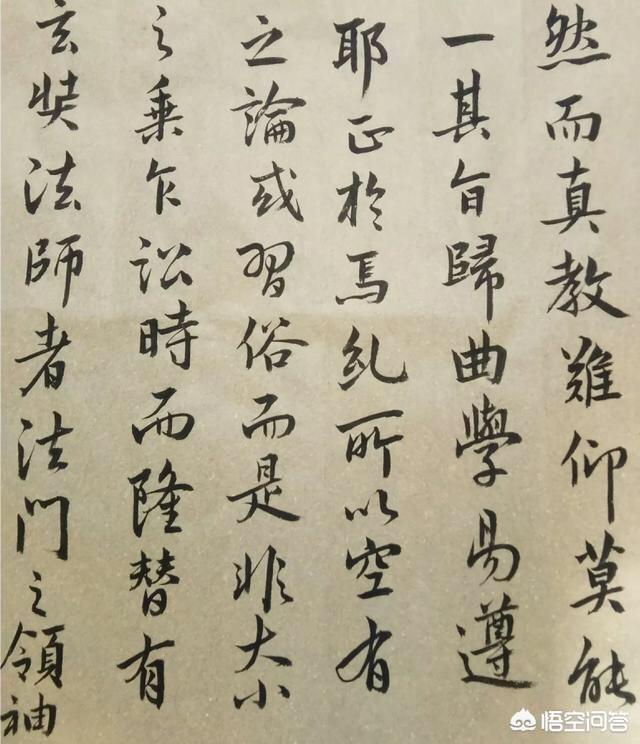 然而真教難仰莫能
一其旨歸曲學易遵
耶正於焉糺所以空有
之論或習俗而是非大小
之乗乍訟時而隆替有
玄奘法師者法門之領袖
悟空问答